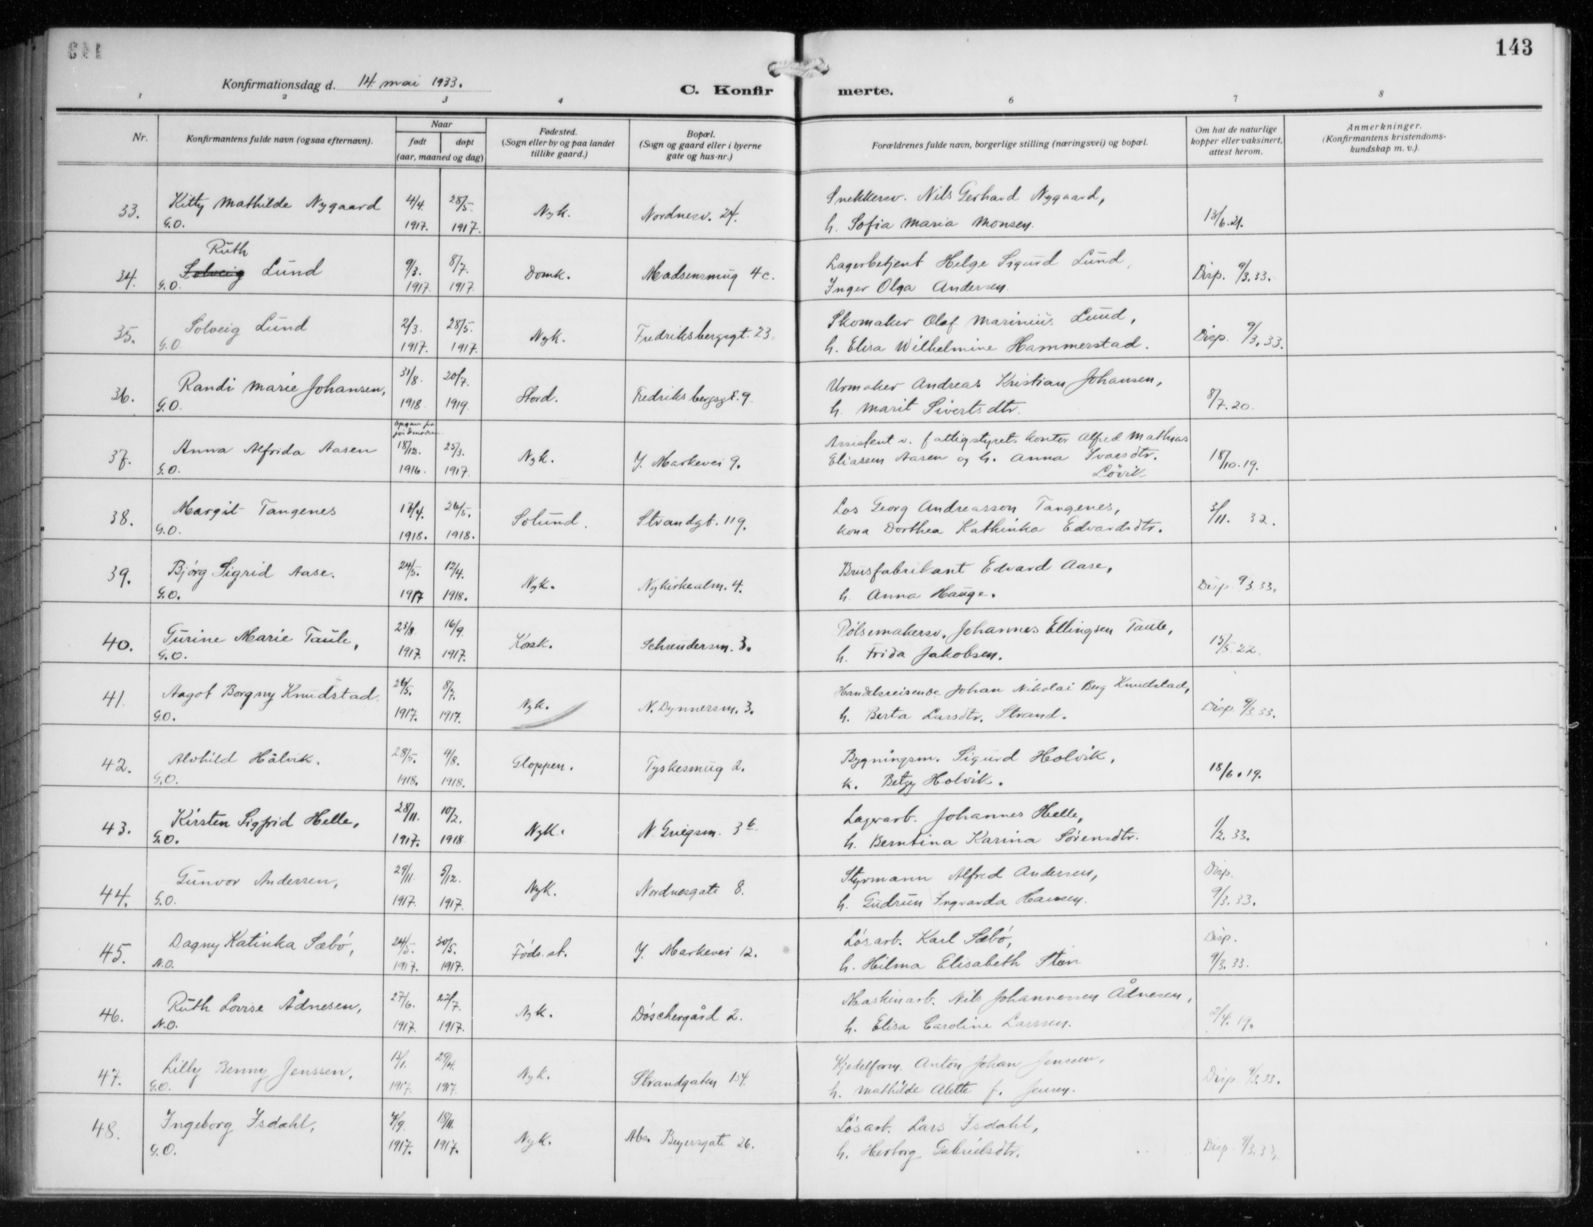 143
Konfirmationsdag d. 14 mai 1933.
C. Konfirmerte.
1 2 3 4 6 7 8
Nr.
Konfirmantens fulde navn (ogsaa efternavn).
Naar
født døpt
(aar, maaned og dag)
Fødested.
(Sogn eller by og paa landet
tillike gaard.)
Bopæl.
(Sogn og gaard eller i byerne
gate og hus-nr.)
Forældrenes fulde navn, borgerlige stilling (næringsvei) og bopæl.
Om hat de naturlige
kopper eller vaksinert,
attest herom.
Anmerkninger.
(Konfirmantens kristendoms-
kundskap m. v.).
33. Kitty Mathilde Nygaard 4/4. 28/5. Nyk. Nordnesv. 24. Snekkersv. Nils Gerhard Nygaard,
G.O. 1917. 1917. h. Sofia Maria Monsen. 13/6.21.
Ruth
34. Solveig Lund 9/3. 8/7. Domk. Madsensmug 4c. Lagerbetjent Helge Sigurd Lund,
G.O. 1917. 1917 Inger Olga Andersen. Disp. 9/3.33.
35. Solveig Lund 2/3. 28/5. Nyk. Fredriksbergsgt. 23. Skomaker Olaf Marinius Lund,
G.O 1917. 1917. h. Elisa Wilhelmine Hammerstad. Disp. 9/3.33.
36. Randi Marie Johansen, 31/8. 20/7. Stord. Fredriksbergsgt. 9. Urmaker Andreas Kristian Johansen,
G.O. 1918 1919. h. Marit Sivertsdtr. 8/7.20.
37. Anna Alfrida Aasen 18/12. 25/3. Nyk. Y. Markevei 9. Assistent v. fattigstyrets kontor Alfred Mathias
G.O. 1916. 1917. Eliassen Aasen og h. Anna Ivarsdtr. 18/10.19.
Løvik.
38. Margit Tangenes 13/4. 26/5. Solund. Strandgt. 119. Los Georg Andreasson Tangenes,
G.O. 1918. 1918. kona Dorthea Kathinka Edvardsdtr. 3/11. 32.
39. Bjørg Sigrid Aase. 24/5. 12/4. Nyk. Nykirkealm. 4. Brusfabrikant Edvard Aase,
G.O. 1917 1918. h. Anna Hauge. Disp. 9/3.33.
40. Gurine Marie Taule, 23/8 16/9. Korsk. Schrøndersm. 3. Pølsemakersv. Johannes Ellingsen Taule,
G.O. 1917. 1917. h. Frida Jakobsen. 13/5-22.
41. Aagot Borgny Knudstad. 26/5. 8/7. Nyk. N. Dynnersm. 3. Handelsreisende Johan Nikolai Berg Knudstad,
G.O. 1917. 1917. h. Berta Larsdtr. Strand. Disp. 9/3.33.
42. Alvhild Hålvik. 28/5. 4/8. Gloppen. Tyskesmug 2. Bygningsm. Sigurd Holvik,
G.O. 1918. 1918. k. Betzy Holvik. 18/6.19.
43. Kirsten Sigfrid Helle, 28/11. 10/2. Nyk. N Griegsm. 3b. Lagerarb. Johannes Helle,
G.O. 1917. 1918 h. Berntina Karina Sørensdtr. 1/2.33.
44. Gunvor Andersen, 29/11 5/12. Nyk. Nordnesgate 8. Styrmann Alfred Andersen, Disp.
G.O. 1917. 1917. h. Gudrun Ingvarda Hansen. 9/3.33.
45. Dagny Katinka Sæbø, 24/5. 30/5. Føds.st. Y. Markevei 12. Løsarb. Karl Sæbø, Disp.
N.O. 1917. 1917. h. Hilma Elisabeth Sten 9/3.33.
46. Ruth Lovise Ådnesen, 27/6. 22/7. Nyk. Døschergård 2. Maskinarb. Nils Johannessen Ådnesen,
N.O. 1917. 1917. h. Elisa Caroline Larssen. 2/4.19.
47. Lilly Benny Jenssen. 12/1. 29/4. Nyk. Strandgaten 154. Kjedelform. Anton Johan Jenssen,
G.O. 1917. 1917. h. Mathilde Alette f. Jensen. Disp. 9/3.33.
48. Ingeborg Isdahl, 4/9. 18/11. Nyk. Abs. Beyersgate 26. Løsarb. Lars Isdahl,
G.O. 1917. 1917. h. Herborg Gabrielsdtr. Disp. 9/3.33.